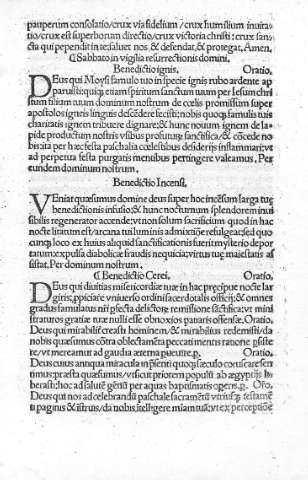 pauperum consolatio/crux via fidelium / crux humilium inuita
tio/crux est superborum directio/crux victoria christi : crux san
cta qui pependit in te saluet nos & defendat, & protegat, Amen.
¶ Sabbato in vigilia resurrectionis domini.
Benedictio ignis. Oratio.
Deus qui Moysi famulo tuo in specie ignis rubo ardente ap
paruisti: quiq; etiam spiritum sanctum tuum per Iesum chri
stum filium tuum dominum nostrum de coelis promissum super
apostolos ignis linguis descendere fecisti: nobis quoq; famulis tuis
charitatis ignem tribuere dignare: & hunc nouum ignem de la
pide productum nostris vsibus profuturum sanctifica/& concede no
bis ita per haec festa paschalia coelestibus desiderijs inflammari: vt
ad perpetua festa purgatis mentibus pertingere valeamus, Per
eundem dominum nostrum.
Benedictio Incensi.
Veniat quaesumus domine deus super hoc incensum larga tuae
benedictionis infusio/& hunc nocturnum splendorem inui
sibilis regenerator accende: vt non solum sacrificium quod in hac
nocte litatum est/arcana tui luminis admixtione refulgeat: sed quo
cunq; loco ex huius aliquid sanctificationis fuerit mysterio depor
tatum: expulsa diabolicae fraudis nequicia/virtus tuae maiestatis as
sistat. Per dominum nostrum.
¶ Benedictio Cerei. Oratio.
Deus qui diuitias misericordiae tuae in hac precipue nocte lar
giris; propiciare vniuerso ordini sacerdotalis officij: & omnes
gradus famulatus nri perfecta delictorum remissione sanctifica: vt mini
straturos gratiae tuae nulli esse obnoxios patiaris offensae. Oratio.
Deus qui mirabiliter creasti hominem/& mirabilius redemisti/da
nobis quaesumus contra oblectamenta peccati mentis ratione persiste
re/vt mereamur ad gaudia aeterna peruenire.p. Oratio.
Deus cuius antiqua miracula in praesenti quoq; saeculo coruscare sen
timus: praesta quaesumus/vt sicut priorem populum ab aegyptijs li
berasti: hoc ad salutem gentium per aquas baptismatis operis.p. Oro.
Deus qui nos ad celebrandum paschale sacramentum vtriusq; testamenti
paginis & instruis/da nobis intelligere miam tuam: vt ex perceptione